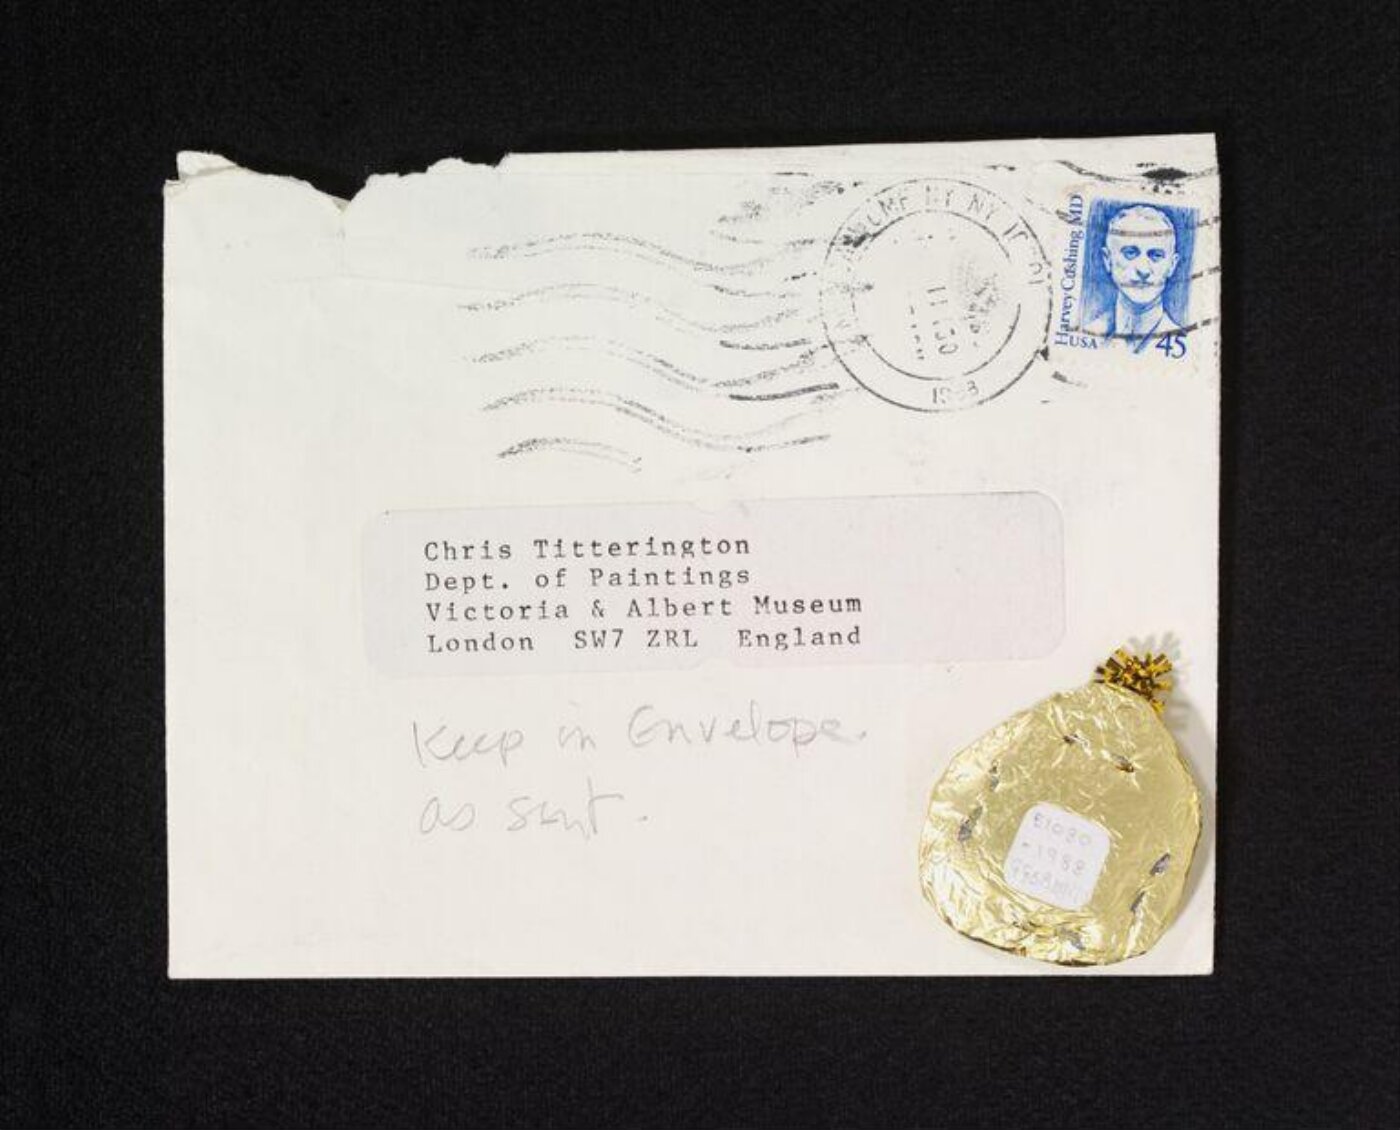 NY NY
OCT 11
1988
Harvey Cushing MD
USA 45
Chris Titterington
Dept. of Paintings
Victoria & Albert Museum
London SW7 ZRL England
Keep in Envelope.
as sent.
E1080
-1988